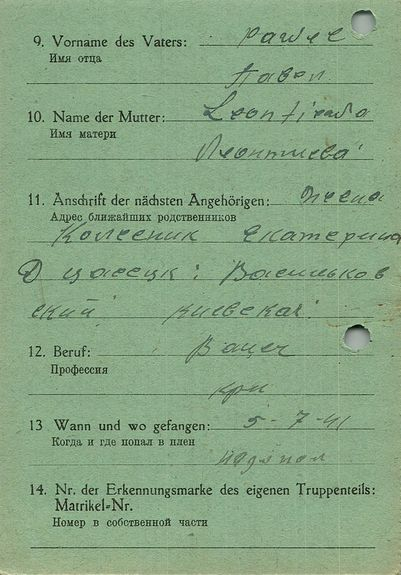 9. Vorname des Vaters:
Имя отца
10. Name der Mutter:
Имя матери
Леонтиева
11. Anschrift der nächsten Angehörigen:
Адрес ближайших родственников
Колесник Екатерина
Васильков
ский Киевская
12. Beruf:
Профессия
13 Wann und wo gefangen: 5-7-41
Когда и где попал в плен
14. Nr. der Erkennungsmarke des eigenen Truppenteils:
Matrikel-Nr.
Номер в собственной части